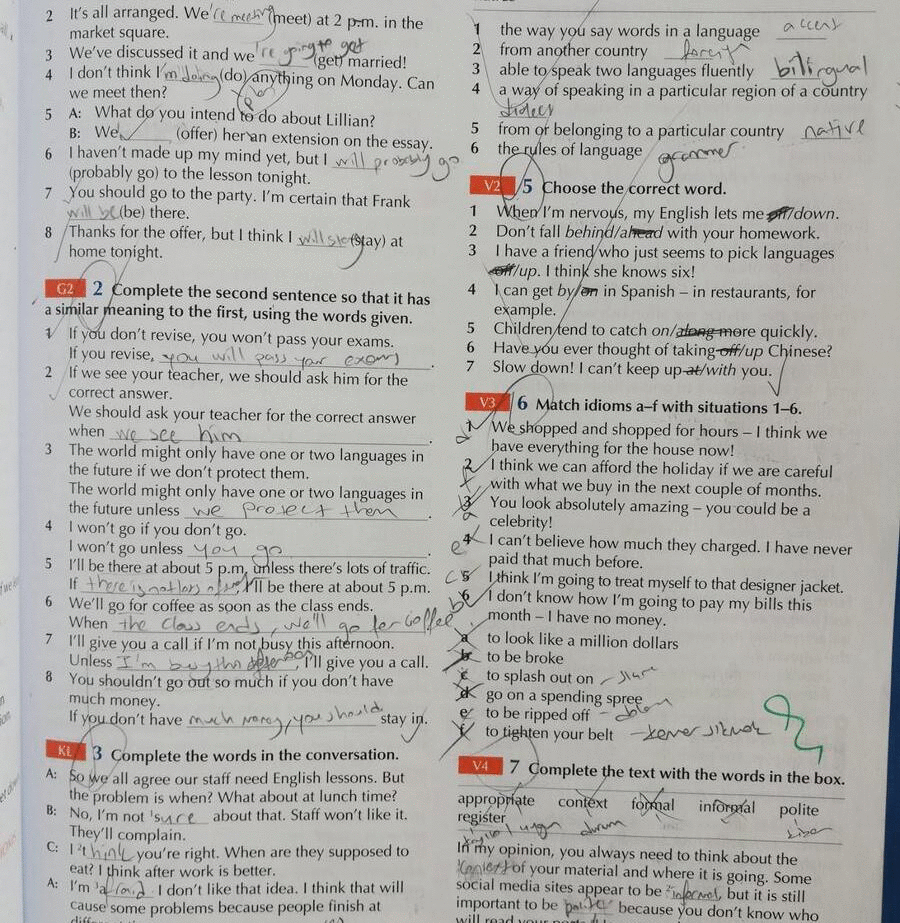 2 It's all arranged. We're meeting (meet) at 2 p.m. in the
market square.
3 We've discussed it and we 're going to get (get) married!
4 I don't think I'm doing (do) anything on Monday. Can
we meet then?
5 A: What do you intend to do about Lillian?
B: We (offer) her an extension on the essay.
6 I haven't made up my mind yet, but I will probably go
(probably go) to the lesson tonight.
7 You should go to the party. I'm certain that Frank
will be (be) there.
8 Thanks for the offer, but I think I will stay (stay) at
home tonight.
G2 2 Complete the second sentence so that it has
a similar meaning to the first, using the words given.
1 If you don't revise, you won't pass your exams.
If you revise, you will pass your exams.
2 If we see your teacher, we should ask him for the
correct answer.
We should ask your teacher for the correct answer
when we see him.
3 The world might only have one or two languages in
the future if we don't protect them.
The world might only have one or two languages in
the future unless we protect them.
4 I won't go if you don't go.
I won't go unless you go.
5 I'll be there at about 5 p.m. unless there's lots of traffic.
If there is not lots of, I'll be there at about 5 p.m.
6 We'll go for coffee as soon as the class ends.
When the class ends, we'll go for coffee
7 I'll give you a call if I'm not busy this afternoon.
Unless I'm busy this, I'll give you a call.
8 You shouldn't go out so much if you don't have
much money.
If you don't have much money, you should stay in.
KL 3 Complete the words in the conversation.
A: So we all agree our staff need English lessons. But
the problem is when? What about at lunch time?
B: No, I'm not ¹sure about that. Staff won't like it.
They'll complain.
C: I ²think you're right. When are they supposed to
eat? I think after work is better.
A: I'm ³afraid I don't like that idea. I think that will
cause some problems because people finish at
1 the way you say words in a language accent
2 from another country
3 able to speak two languages fluently bilingual
4 a way of speaking in a particular region of a country
5 from or belonging to a particular country native
6 the rules of language grammer
V2 5 Choose the correct word.
1 When I'm nervous, my English lets me off/down.
2 Don't fall behind/ahead with your homework.
3 I have a friend who just seems to pick languages
off/up. I think she knows six!
4 I can get by/on in Spanish – in restaurants, for
example.
5 Children tend to catch on/along more quickly.
6 Have you ever thought of taking off/up Chinese?
7 Slow down! I can't keep up at/with you.
V3 6 Match idioms a–f with situations 1–6.
d 1 We shopped and shopped for hours – I think we
have everything for the house now!
f 2 I think we can afford the holiday if we are careful
with what we buy in the next couple of months.
a 3 You look absolutely amazing – you could be a
celebrity!
e 4 I can't believe how much they charged. I have never
paid that much before.
c 5 I think I'm going to treat myself to that designer jacket.
b 6 I don't know how I'm going to pay my bills this
month – I have no money.
a to look like a million dollars
b to be broke
c to splash out on
d go on a spending spree
e to be ripped off
f to tighten your belt – kemer sıkmak
V4 7 Complete the text with the words in the box.
appropriate context formal informal polite
register
uygun durum kibar
In my opinion, you always need to think about the
¹context of your material and where it is going. Some
social media sites appear to be ²informal, but it is still
important to be ³polite because you don't know who
will read your